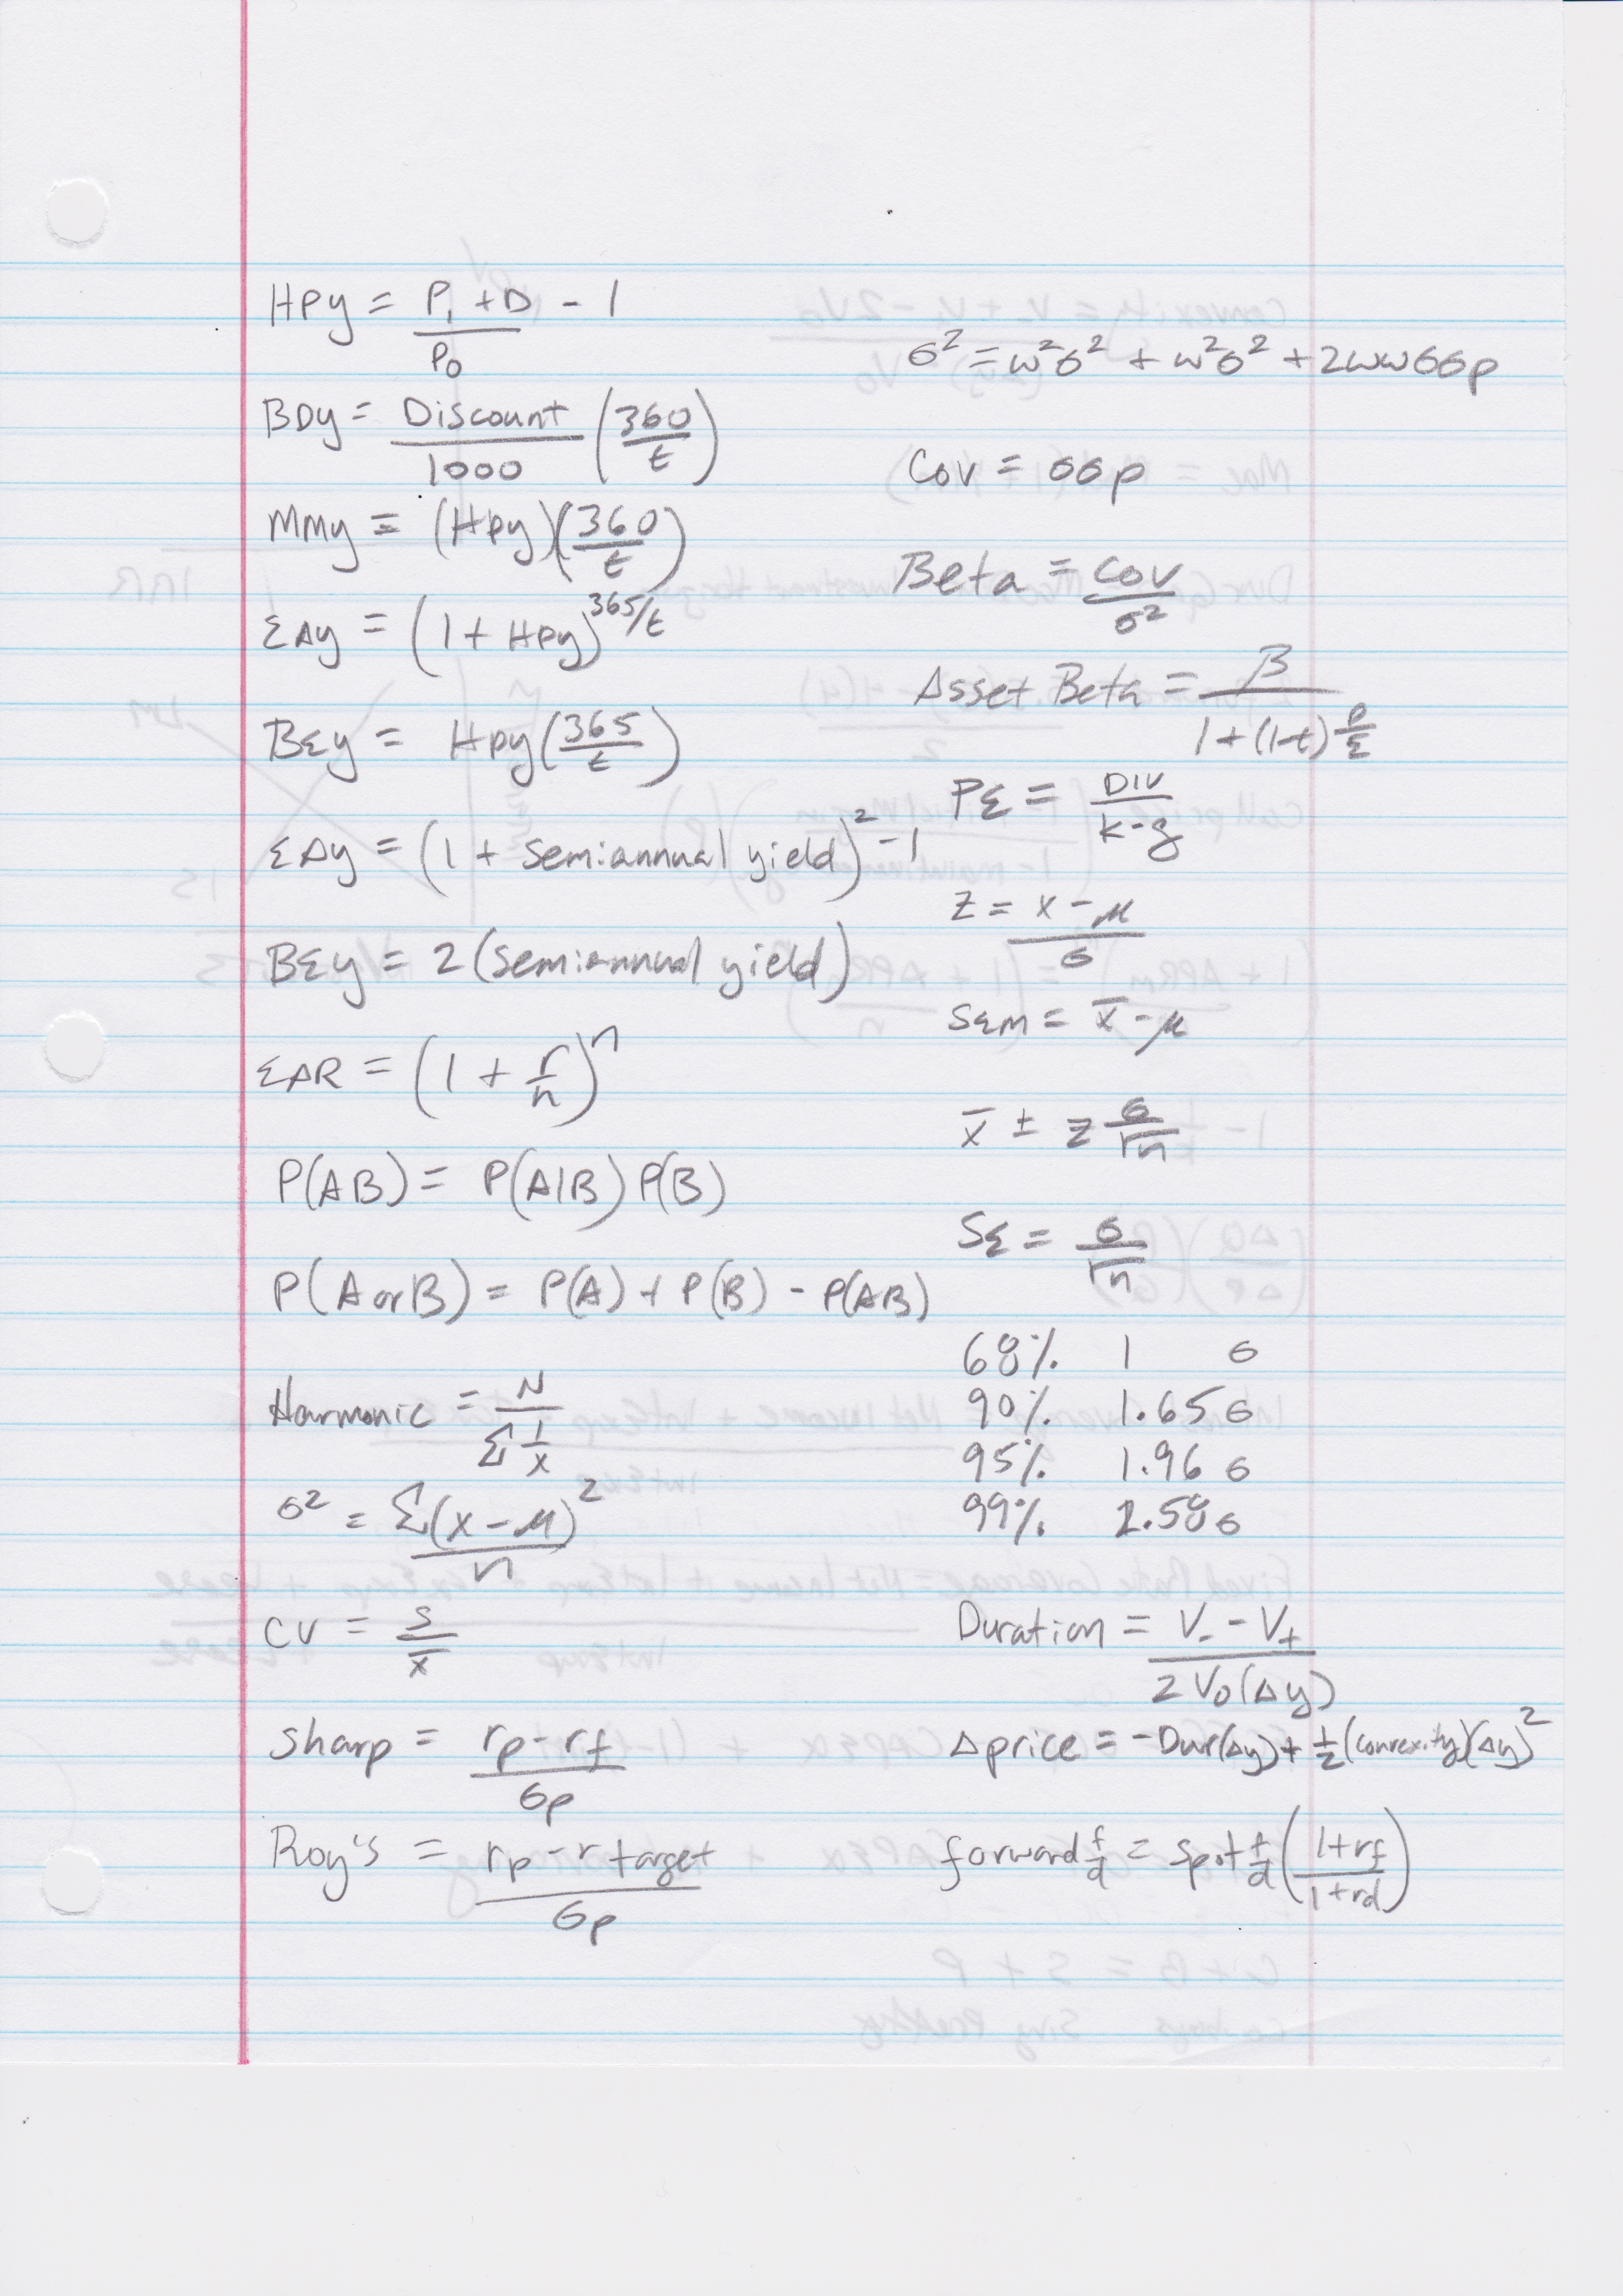 HPY = P₁ + D / P₀ - 1
BDY = Discount / 1000 (360/t)
MMY = (HPY)(360/t)
EAY = (1 + HPY)^365/t
BEY = HPY(365/t)
EAY = (1 + semiannual yield)² - 1
BEY = 2 (semiannual yield)
EAR = (1 + r/n)^n
P(AB) = P(A|B) P(B)
P(A or B) = P(A) + P(B) - P(AB)
Harmonic = N / Σ 1/x
σ² = Σ(x - μ)² / n
CV = s / x̄
Sharp = rp - rf / σp
Roy's = rp - r target / σp
σ² = w²σ² + w²σ² + 2wwσσρ
Cov = σσρ
Beta = Cov / σ²
Asset Beta = β / 1 + (1-t) D/E
PE = DIV / k-g
Z = x - μ / σ
SEM = x̄ - μ
x̄ ± z σ/√n
SE = σ/√n
68% 1 σ
90% 1.65 σ
95% 1.96 σ
99% 2.58 σ
Duration = V₋ - V₊ / 2V₀(Δy)
Δprice = -Dur(Δy) + 1/2 (convexity)(Δy)²
forward f/d = spot f/d (1+rf / 1+rd)